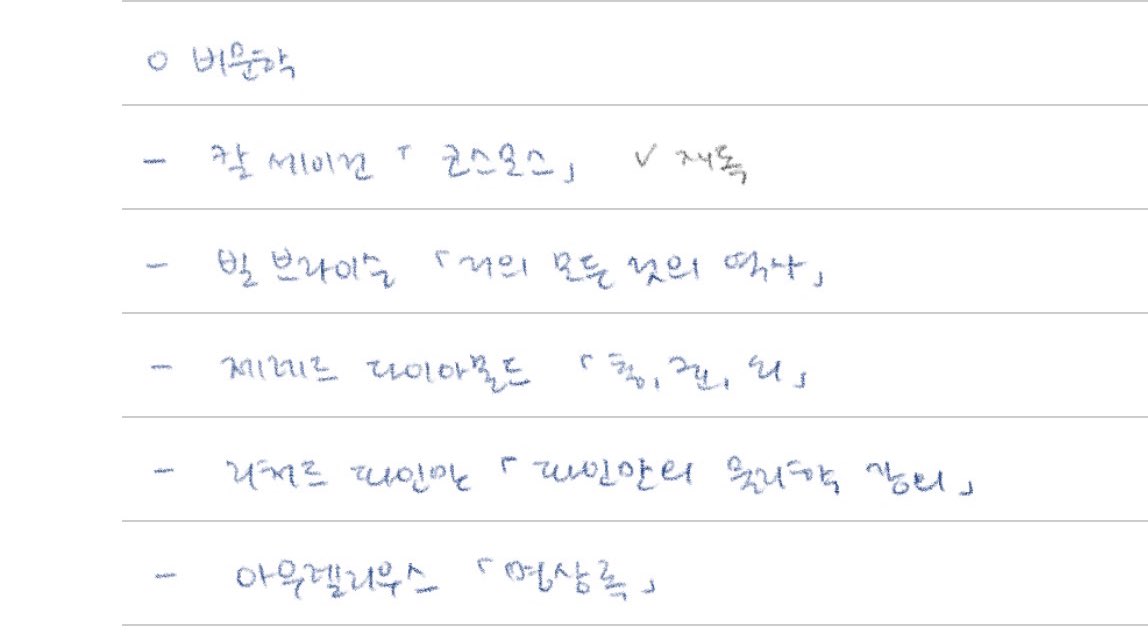 ○ 비문학
- 칼 세이건 「코스모스」 ✓ 재독
- 빌 브라이슨 「거의 모든 것의 역사」
- 제레드 다이아몬드 「총, 균, 쇠」
- 리처드 파인만 「파인만의 물리학 강의」
- 아우렐리우스 「명상록」